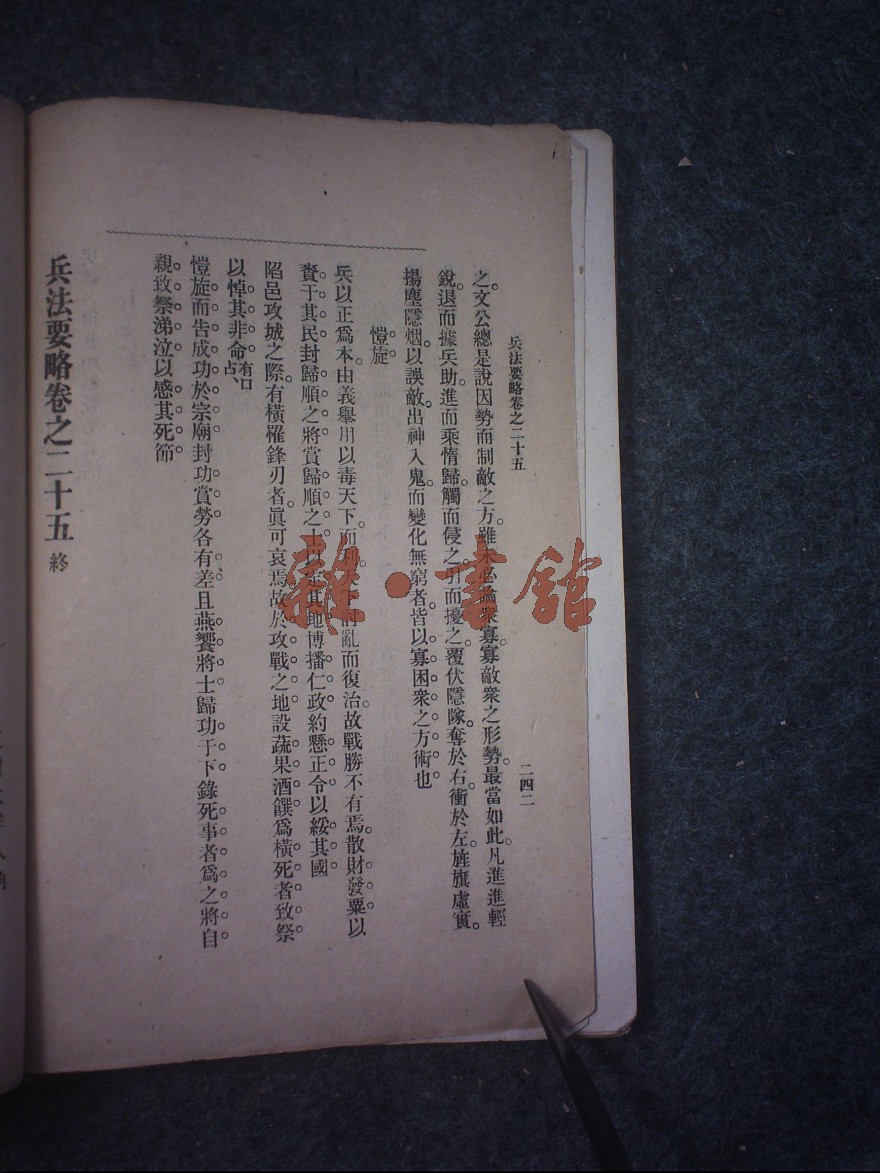 兵法要略卷之二十五
二四二
之文公總是說因勢而制敵之方。雖未必論衆寡。寡敵衆之形勢。最當如此。凡進進輕
銳。退而據兵助。進而乘惰歸。觸而侵之。引而擾之。覆伏隱隊。奪於右。衝於左。旌旗虛實。
揚塵隱烟。以誤敵。出神入鬼。而變化無窮者。皆以寡困衆之方術也
愷旋
兵以正爲本。由義擧用以毒天下。而利 亂而復治。故戰勝不有焉。散財發粟以
賚于其民封歸順之將賞歸順之士以定其地博播仁政約懸正令以綏其國
陷邑攻城之際。有橫罹鋒刃者。眞可哀焉。故於攻戰之地設蔬果酒饌爲橫死者致祭
以悼其非命有口占、
愷旋而告成功於宗廟封功賞勞各有差且燕饗將士歸功于下錄死事者爲之將自
親致祭涕泣以感其死節
兵法要略卷之二十五 終
雜·書館